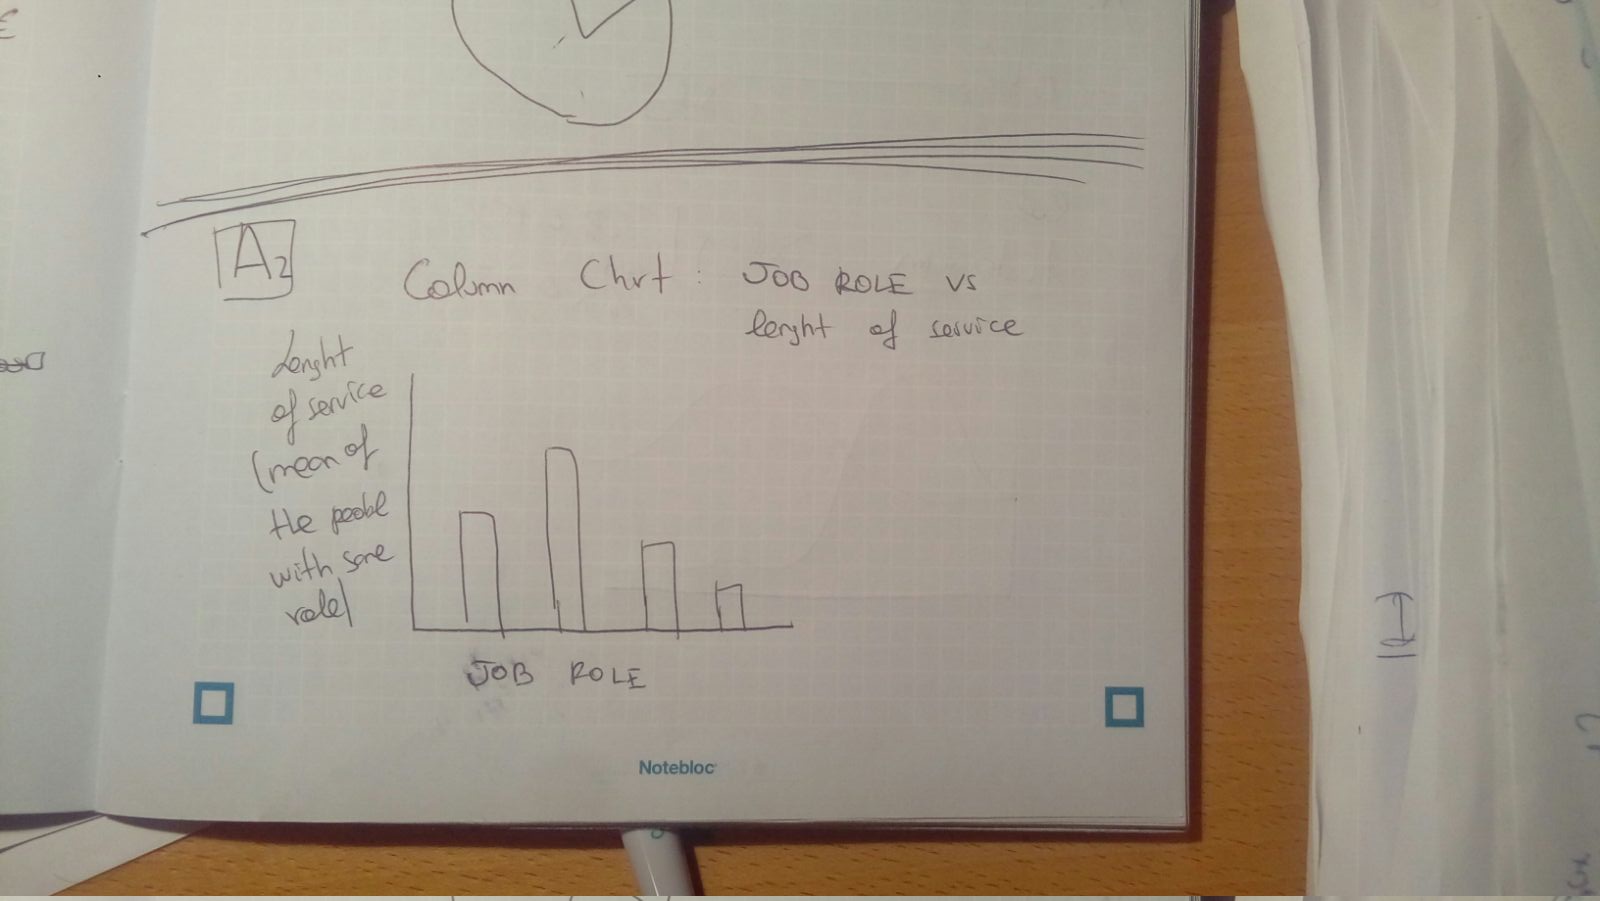 A2
Column Chrt : JOB ROLE VS
lenght of service
Lenght
of service
(mean of
the peoble
with same
role)
JOB ROLE
Notebloc